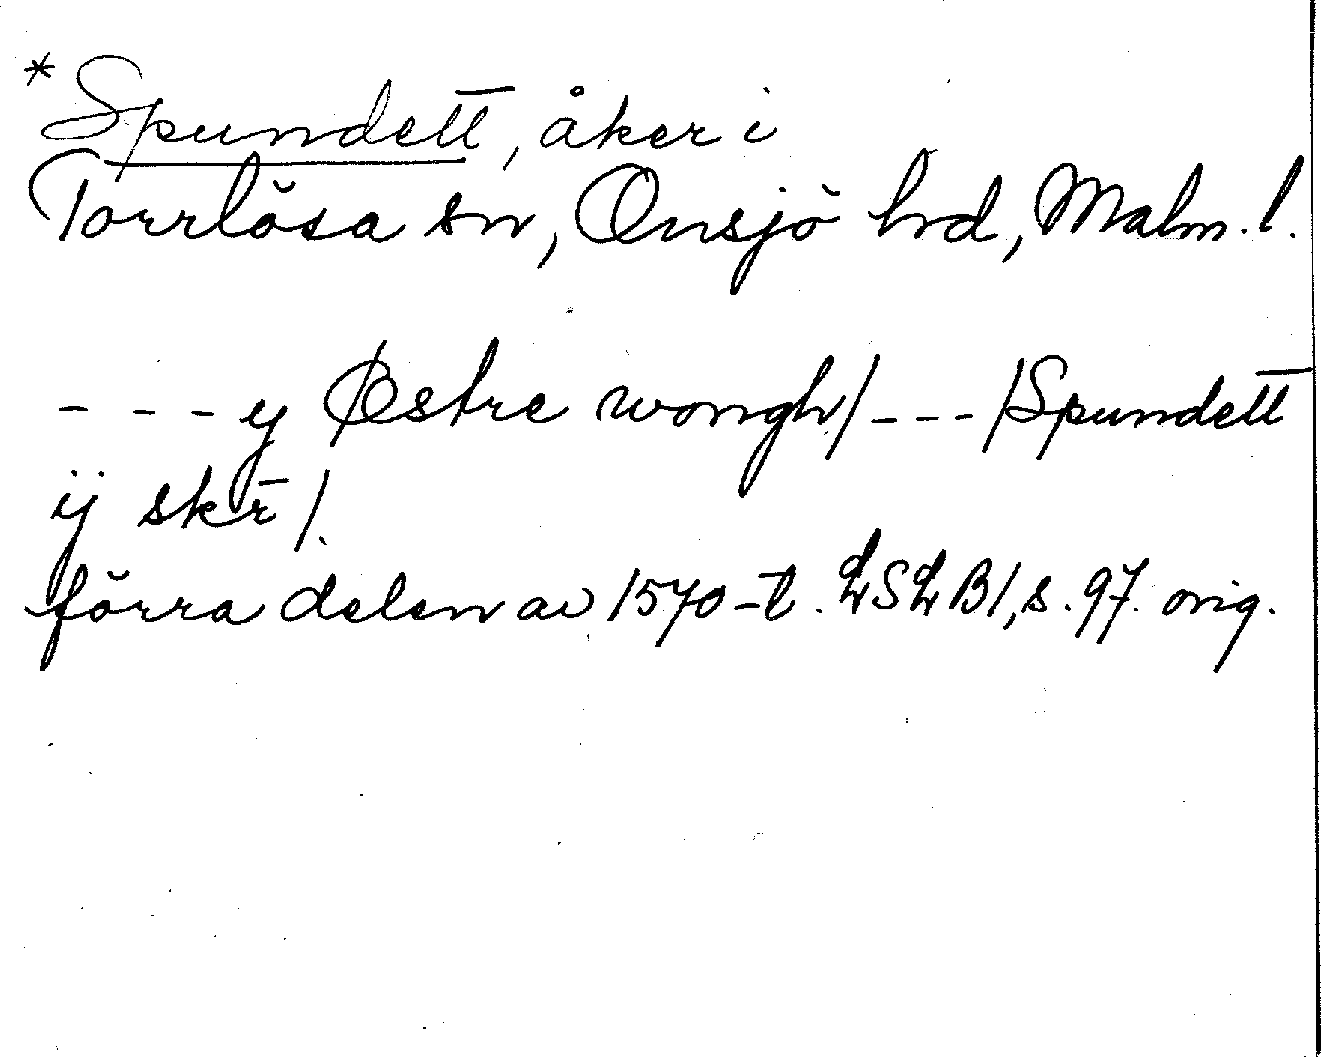 *Spundett, åker i
Torrlösa sn, Onsjö hrd, Malm. l.
- - - y Østre wongh/ - - - /Spundett
ij skr̄ /.
förra delen av 1570-t. LSLB1, s. 97. orig.